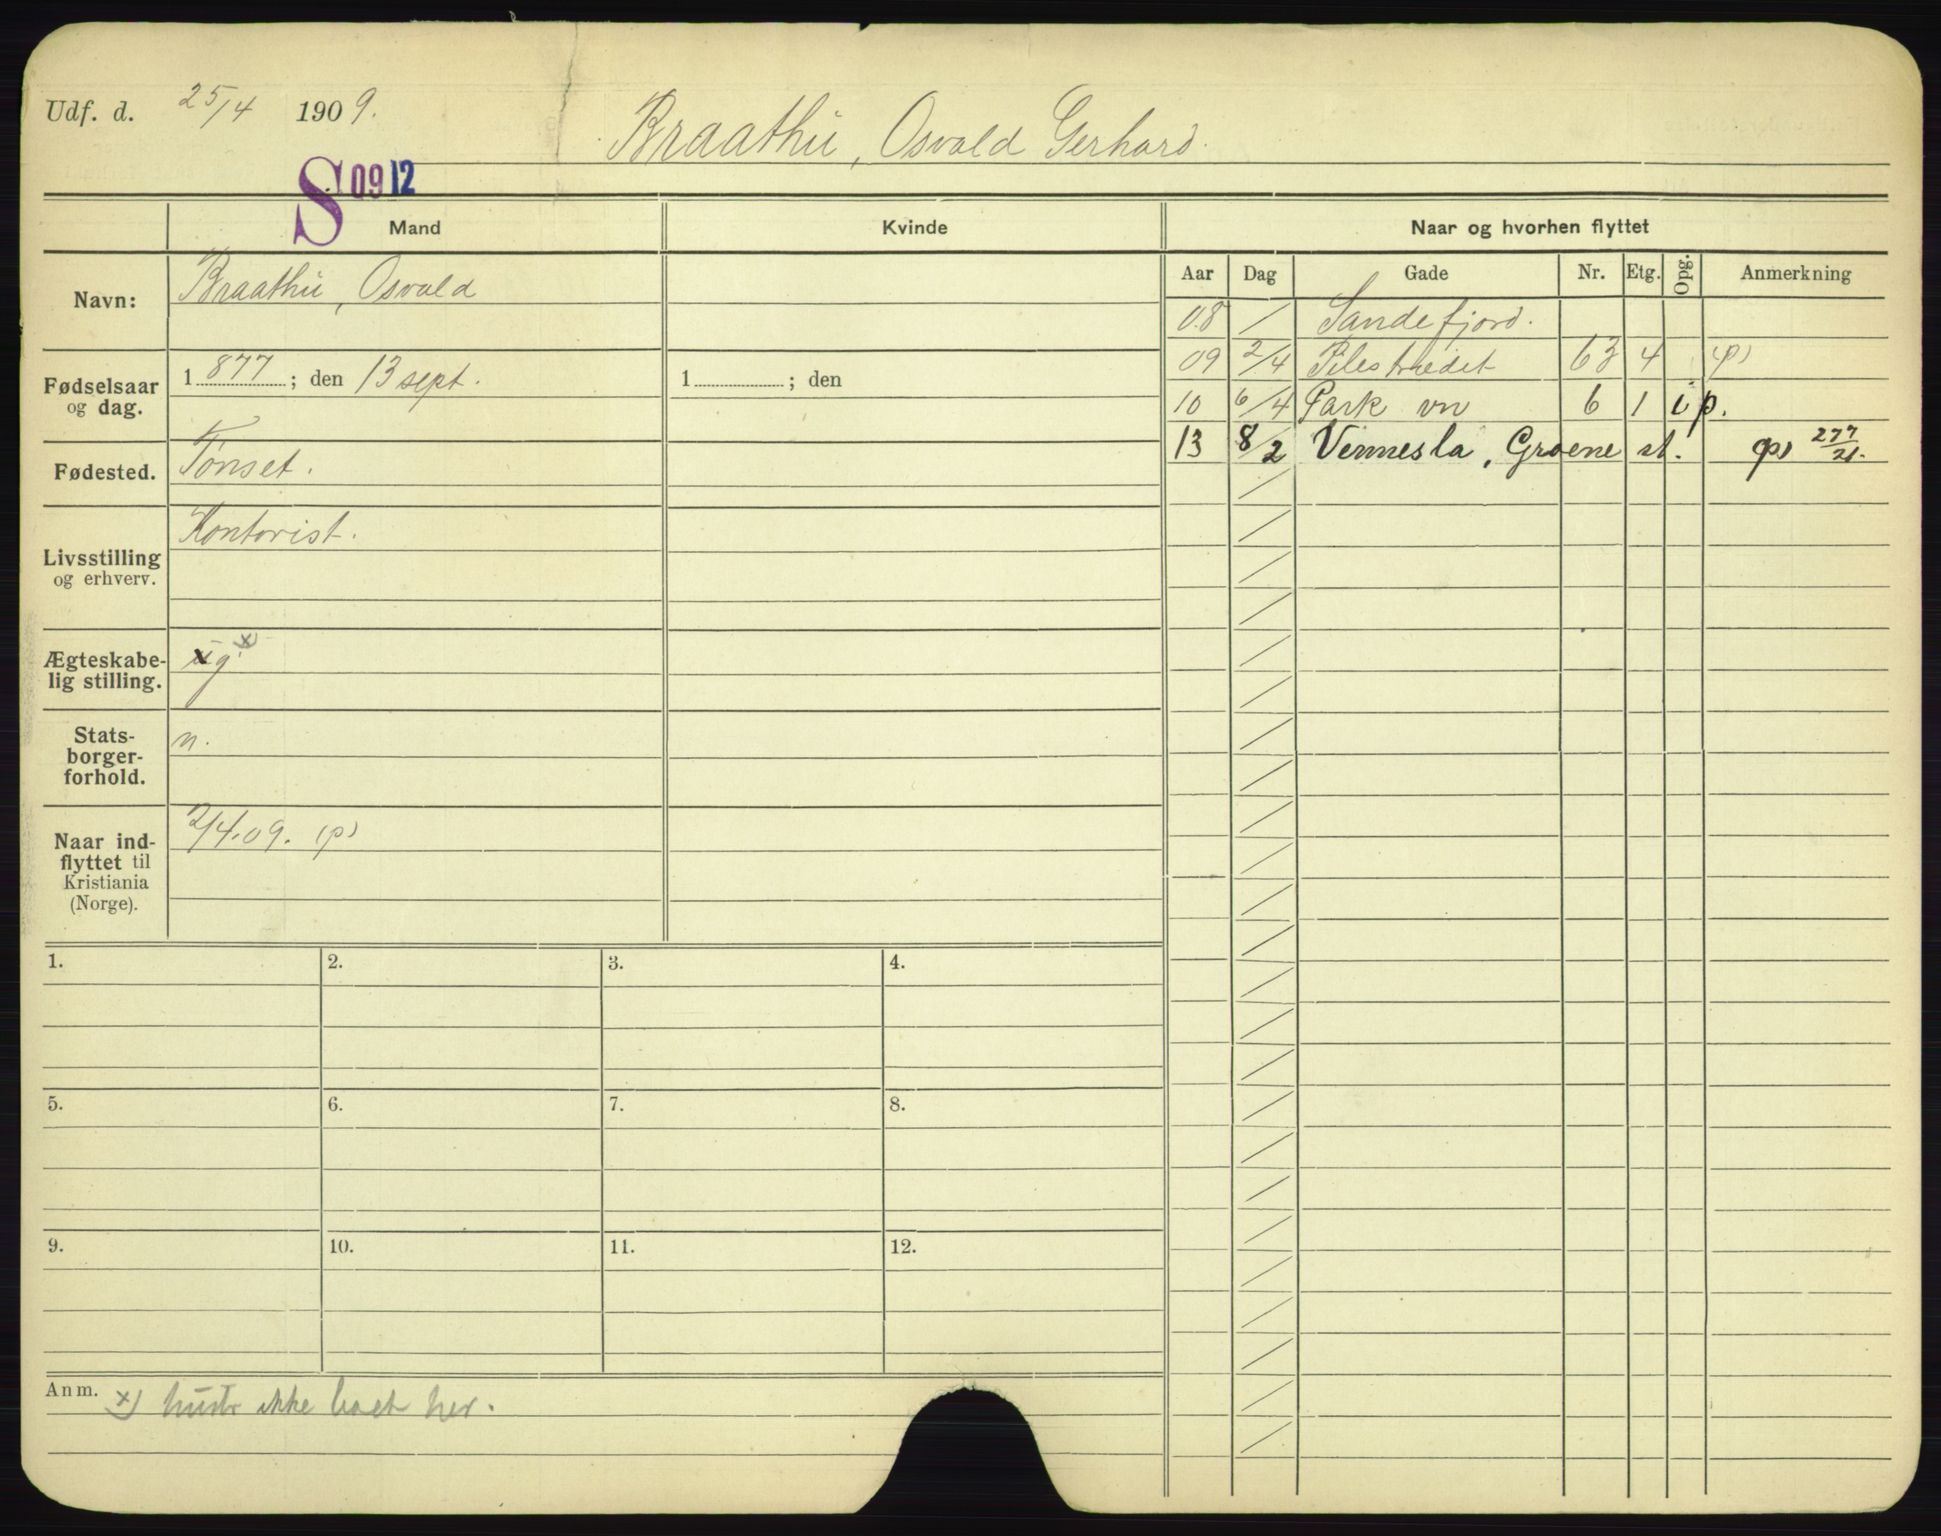 Udf. d. 25/4 1909.
Braathu, Osvald Gerhard.
S 09 12
Mand
Kvinde
Naar og hvorhen flyttet
Aar Dag Gade Nr. Etg. Opg. Anmerkning
Navn: Braathu, Osvald
Fødselsaar og dag. 1877; den 13 sept. 1 ; den
Fødested. Tönset.
Livsstilling og erhverv. Kontorist.
Ægteskabelig stilling. x)
Statsborgerforhold. n.
Naar indflyttet til Kristiania (Norge). 2/4.09. (p)
08 / Sandefjord.
09 2/4 Pilestrædet 63 4 (p)
10 6/4 Park vn 6 1 i p.
13 8/2 Vennesla, Groene st. (p) 277/21.
1. 2. 3. 4.
5. 6. 7. 8.
9. 10. 11. 12.
Anm. x) hustr ikke boet her.